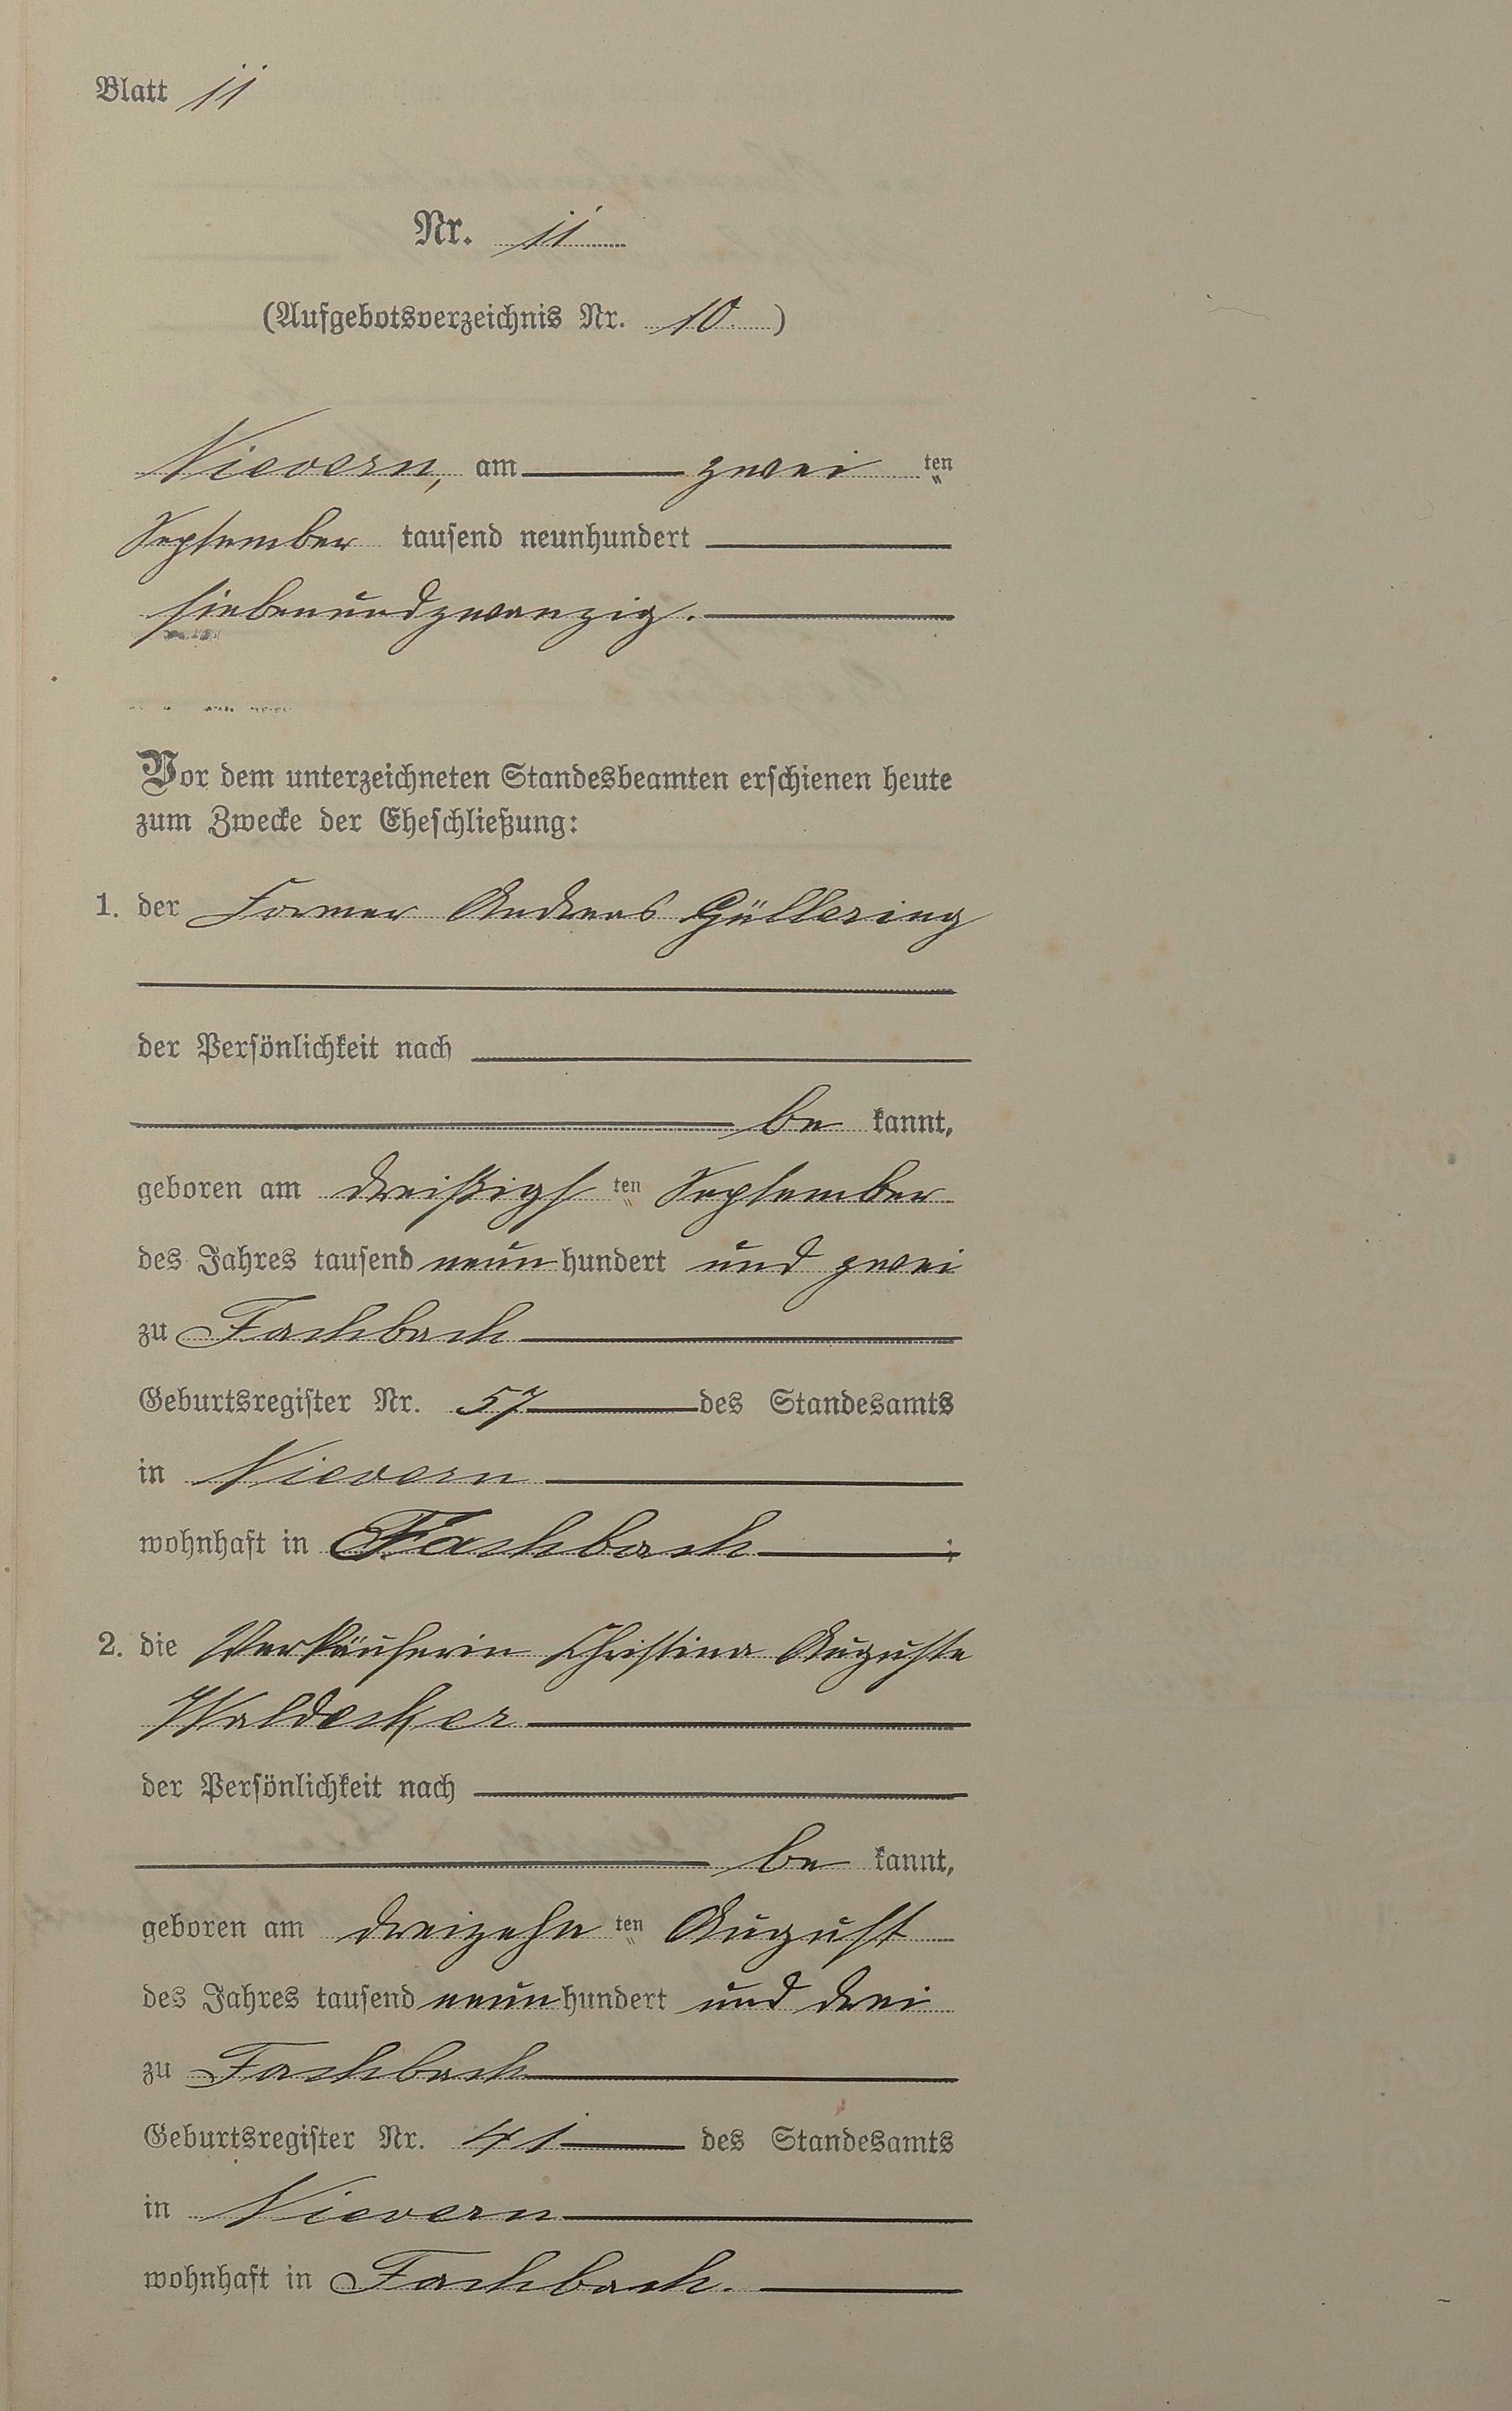 Blatt 11
Nr. 11
(Aufgebotsverzeichnis Nr. 10)
Nievern, am zwei ten
September tausend neunhundert
siebenundzwanzig.
Vor dem unterzeichneten Standesbeamten erschienen heute
zum Zwecke der Eheschließung:
1. der Former Andreas Güllering
der Persönlichkeit nach
be kannt,
geboren am dreißigs ten September
des Jahres tausend neun hundert und zwei
zu Fachbach
Geburtsregister Nr. 57 des Standesamts
in Nievern
wohnhaft in Fachbach ;
2. die Verkäuferin Christina Auguste
Waldecker
der Persönlichkeit nach
be kannt,
geboren am dreizehn ten August
des Jahres tausend neun hundert und drei
zu Fachbach
Geburtsregister Nr. 41 des Standesamts
in Nievern
wohnhaft in Fachbach.